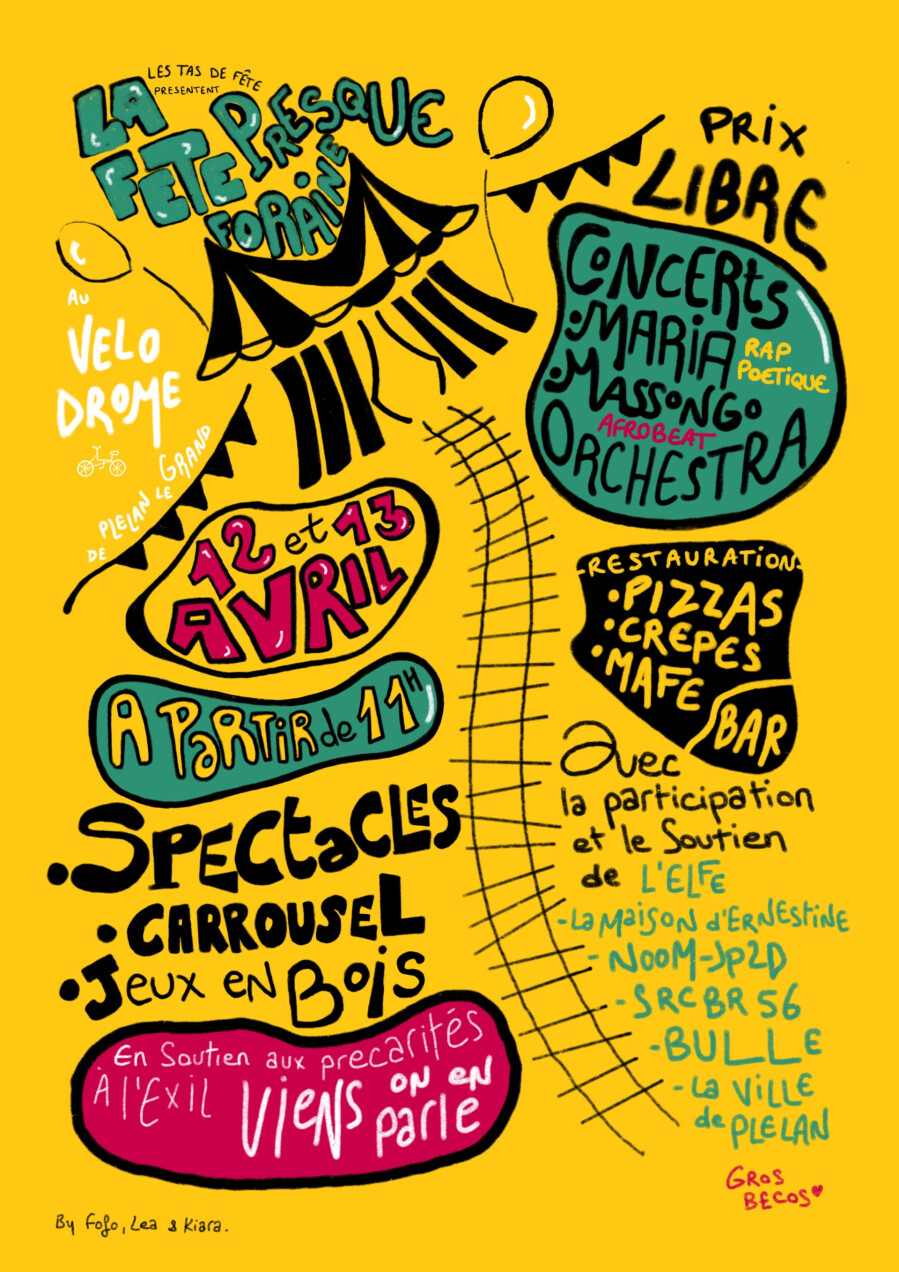 LES TAS DE FÊTE
PRESENTENT
LA
FÊTE PRESQUE
FORAINE
PRIX
LIBRE
AU
VELO
DROME
DE PLELAN LE GRAND
CONCERTS
• MARIA RAP
POETIQUE
• MASSONGO
AFROBEAT
ORCHESTRA
12 et 13
AVRIL
A PARTIR de 11H
-RESTAURATION-
• PIZZAS
• CREPES
• MAFE
BAR
• SPECtaCLES
• CARROUSEL
• Jeux en Bois
Avec
la participation
et le Soutien
de L'ELFE
- La Maison d'ERNESTINE
- NOOM-Jp2D
- SRC BR 56
- BULLE
- La VILLE
de PLELAN
En Soutien aux precarités
À l'Exil
Viens on en
parle
GROS
BECOS
By Fofo, Lea & Kiara.